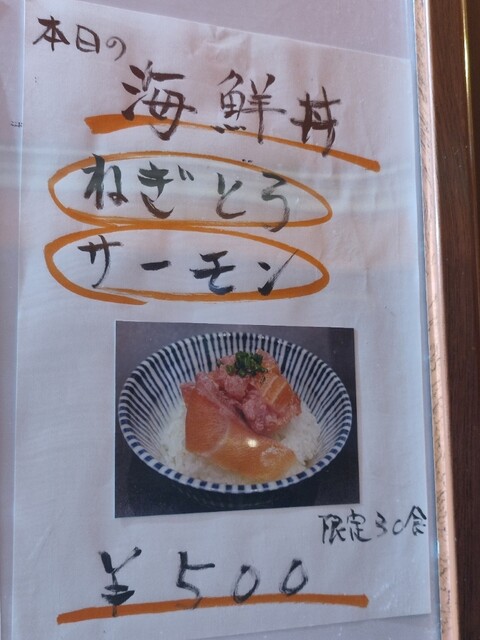 本日の
海鮮丼
ねぎとろ
サーモン
限定30食
¥500